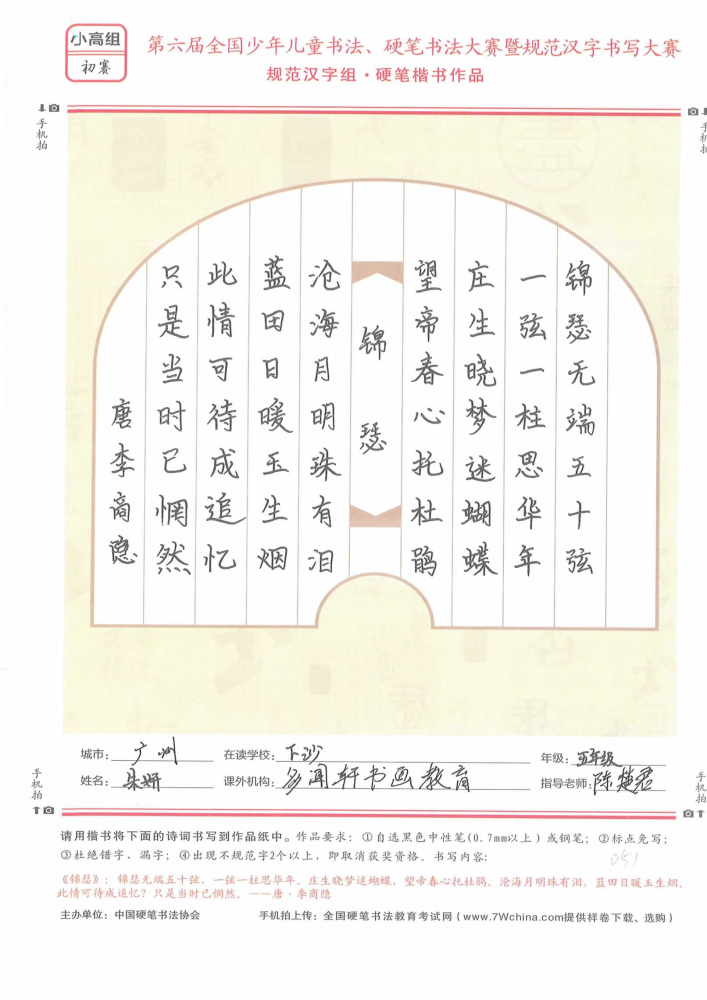 小高组
初赛
第六届全国少年儿童书法、硬笔书法大赛暨规范汉字书写大赛
规范汉字组·硬笔楷书作品
手机拍
手机拍
锦瑟无端五十弦
一弦一柱思华年
庄生晓梦迷蝴蝶
望帝春心托杜鹃
锦瑟
沧海月明珠有泪
蓝田日暖玉生烟
此情可待成追忆
只是当时已惘然
唐李商隐
城市：广州 在读学校：下沙 年级：五年级
姓名：朱妍 课外机构：多闻轩书画教育 指导老师：陈楚君
手机拍
手机拍
请用楷书将下面的诗词书写到作品纸中。作品要求：①自选黑色中性笔(0.7mm以上）或钢笔；②标点免写；
③杜绝错字、漏字；④出现不规范字2个以上，即取消获奖资格。书写内容：
051
《锦瑟》：锦瑟无端五十弦，一弦一柱思华年。庄生晓梦迷蝴蝶，望帝春心托杜鹃。沧海月明珠有泪，蓝田日暖玉生烟。
此情可待成追忆？只是当时已惘然。——唐·李商隐
主办单位：中国硬笔书法协会 手机拍上传：全国硬笔书法教育考试网（www.7Wchina.com提供样卷下载、选购）